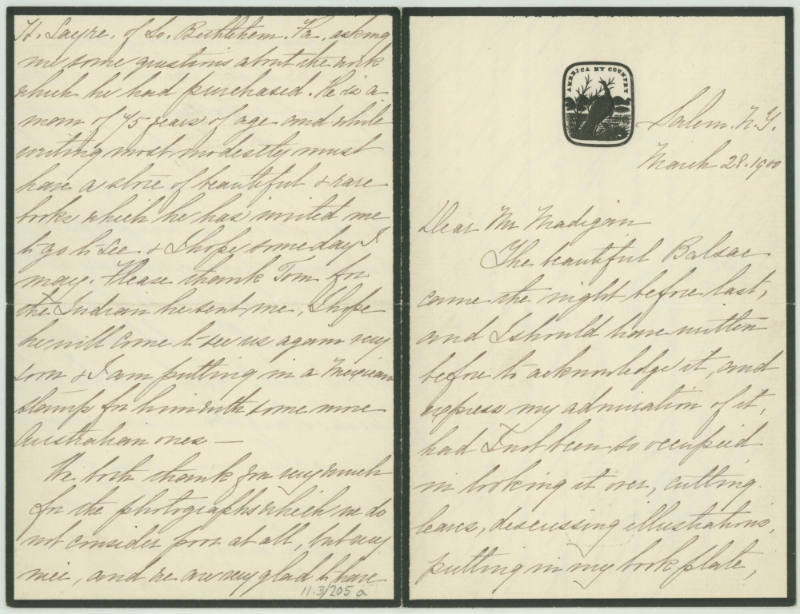 H. Sayre, of So. Bethlehem. Pa. asking
me some questions about the work
which he had purchased. He is a
man of 75 years of age and while
writing most modestly must
have a store of beautiful & rare
books which he has invited me
to go to see & I hope some day I
may. Please thank Tom for
the Indian he sent me, I hope
he will come to see us again very
soon & I am putting in a Mexican
stamp for him with some more
Australian ones —
We both thank you very much
for the photographs which we do
not consider poor at all, but very
nice, and we are very glad to have
11.3/205 a
AMERICA MY COUNTRY
Salem. N.Y.
March 28. 1900
Dear Mr Madigan
The beautiful Balsac
came the night before last,
and I should have written
before to acknowledge it, and
express my admiration of it,
had I not been so occupied
in looking it over, cutting
leaves, discussing illustrations,
putting in my book plate,